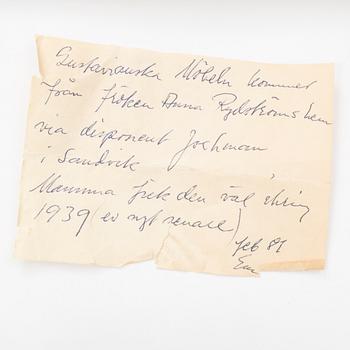 Gustavianska Möbeln kommer
från fröken Anna Rydströms hem
via disponent Jochman
i Sandvik
Mamma fick den väl
1939 (ev nyt senare)
feb 81